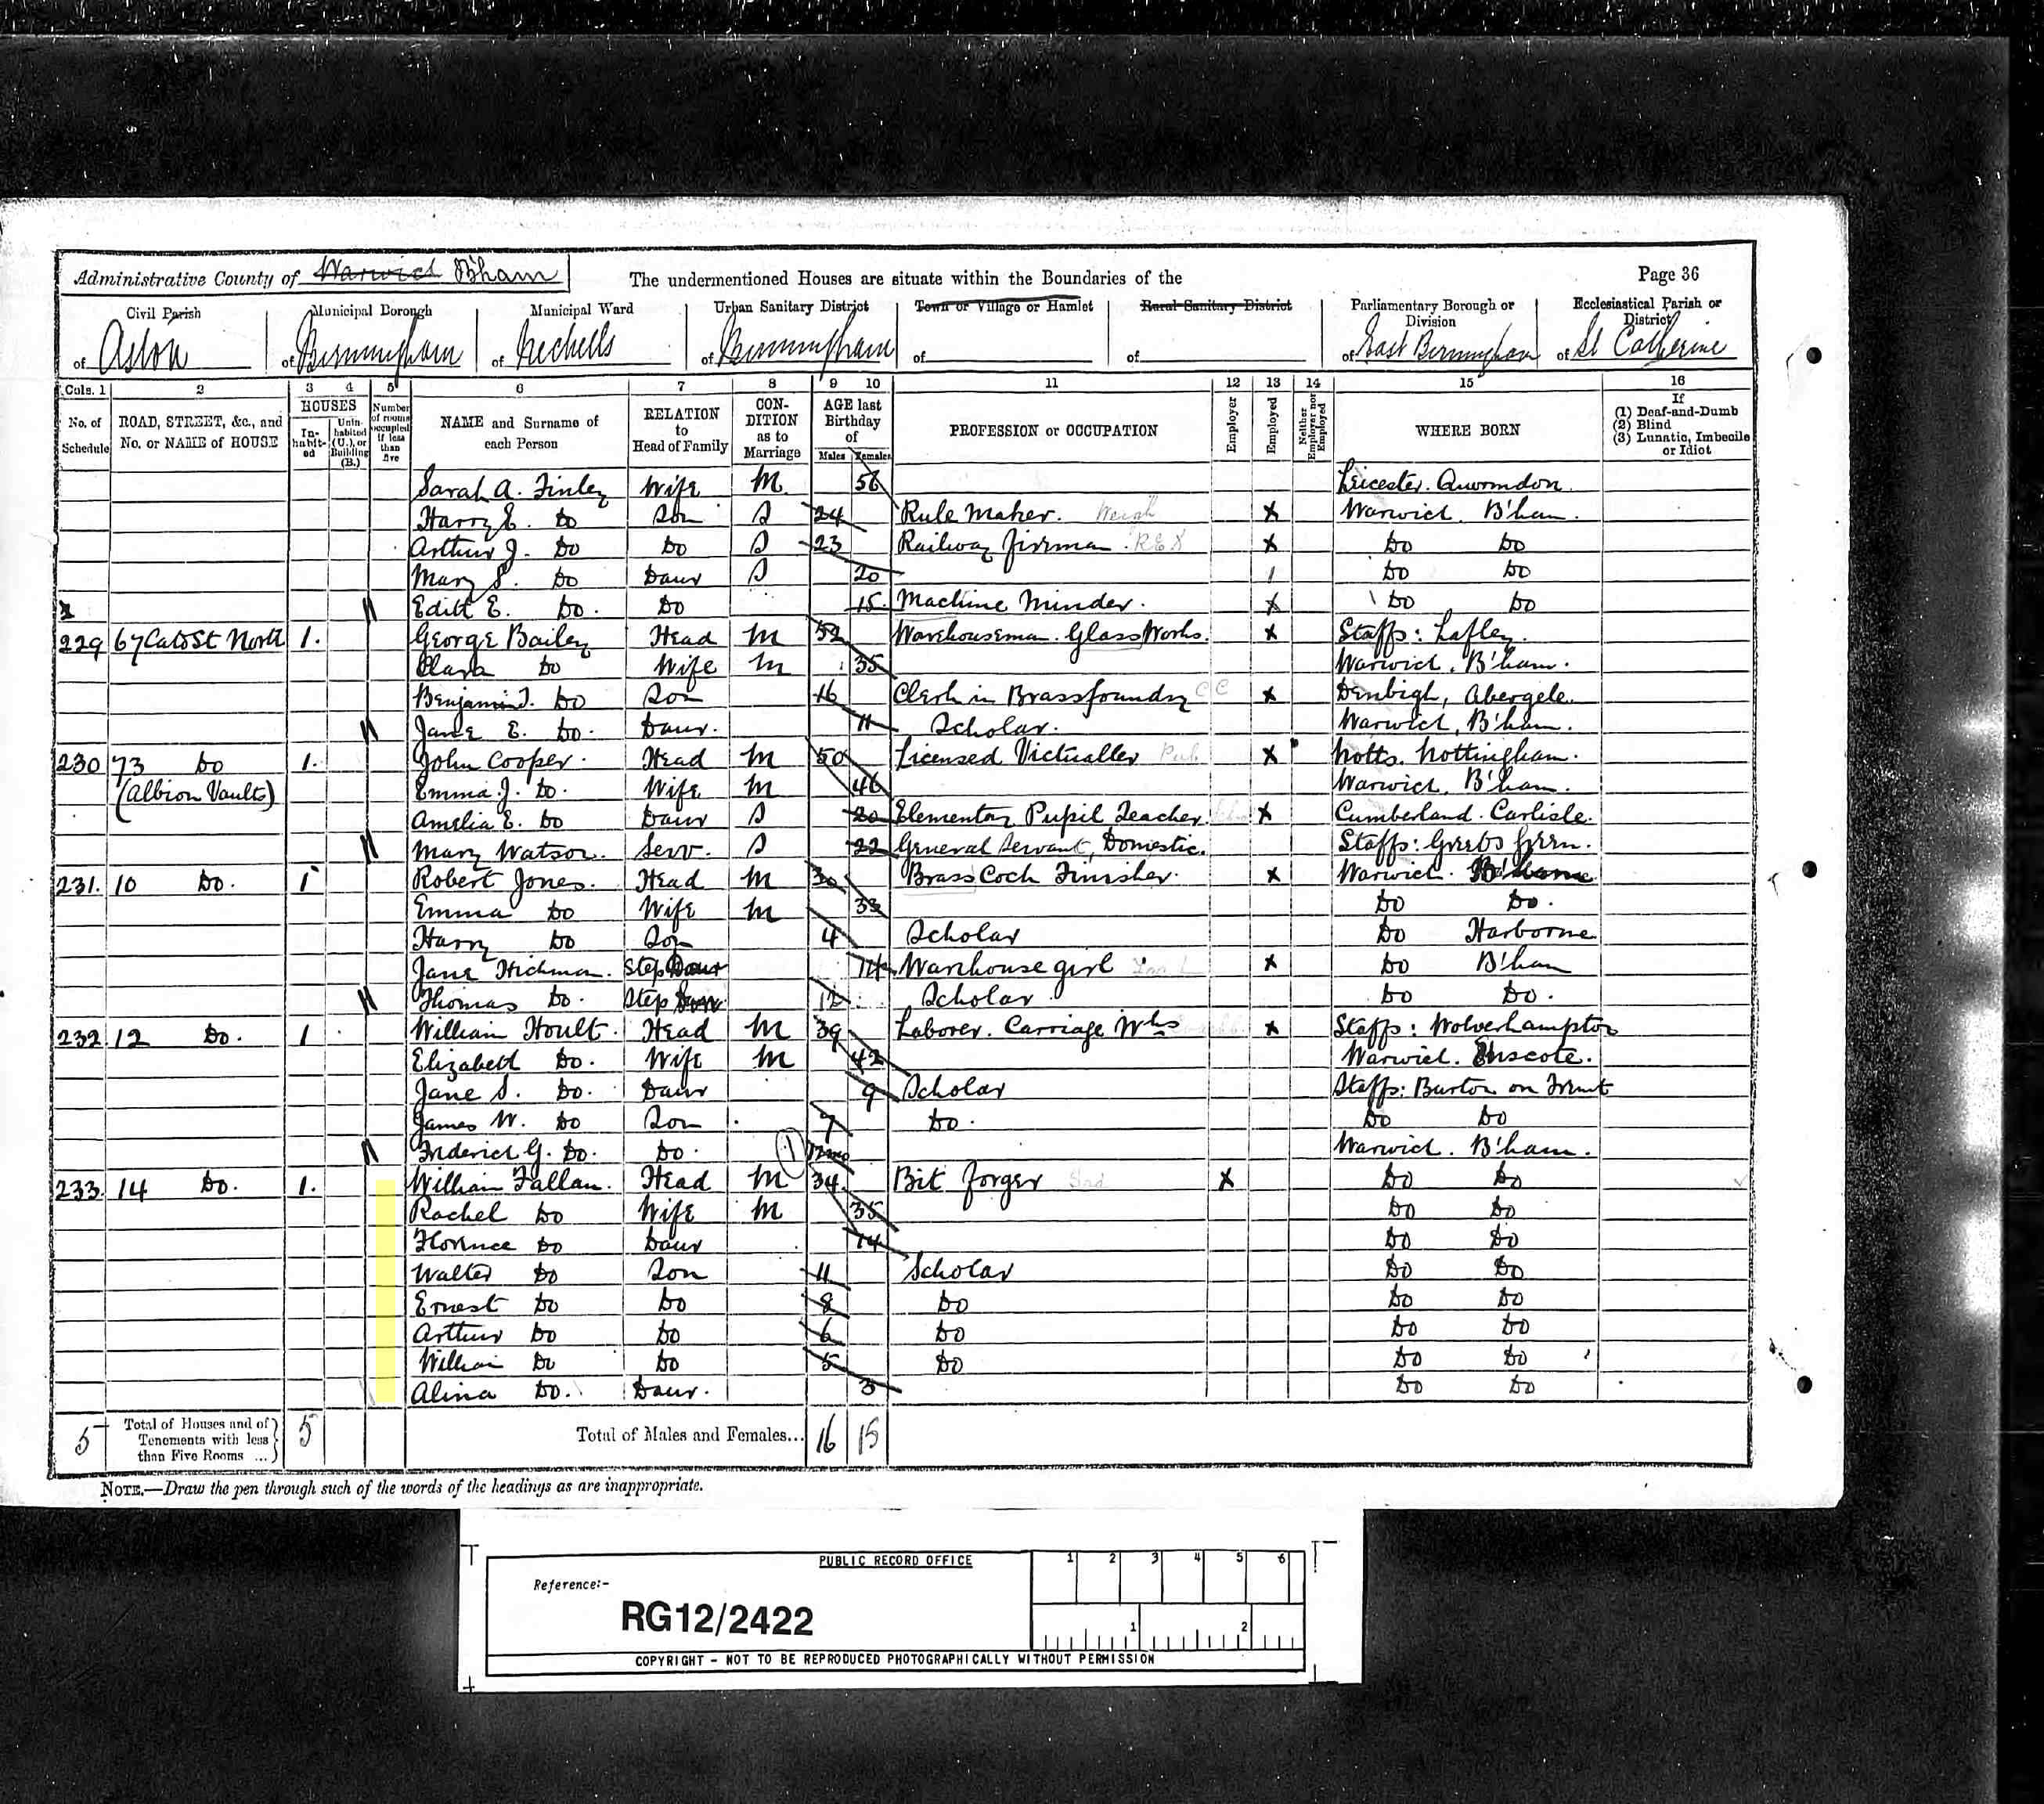 Administrative County of Warwick B'ham The undermentioned Houses are situate within the Boundaries of the Page 36
Civil Parish Municipal Borough Municipal Ward Urban Sanitary District Town or Village or Hamlet Rural Sanitary District Parliamentary Borough or Division Ecclesiastical Parish or District
of Aston of Birmingham of Nechells of Birmingham of of of East Birmingham of St Catherine
Cols. 1 2 3 4 5 6 7 8 9 10 11 12 13 14 15 16
No. of Schedule ROAD, STREET, &c., and No. or NAME of HOUSE HOUSES Inhabited Uninhabited (U.), or Building (B.) Number of rooms occupied if less than five NAME and Surname of each Person RELATION to Head of Family CONDITION as to Marriage AGE last Birthday of Males Females PROFESSION or OCCUPATION Employer Employed Neither Employer nor Employed WHERE BORN If (1) Deaf-and-Dumb (2) Blind (3) Lunatic, Imbecile or Idiot
Sarah A. Finley Wife M 56 Leicester. Quorndon
Harry E. Do Son S 24 Rule Maker. Weigh X Warwick. B'ham.
Arthur J. Do Do S 23 Railway fireman. X Do Do
Mary S. Do Daur S 20 Do Do
Edith E. Do. Do 15 Machine Minder. X Do Do
229 67 Cato St North 1. George Bailey Head M 52 Warehouseman. Glass Works. X Staffs:
Clara Do Wife M 35 Warwick. B'ham.
Benjamin J. Do Son 16 Clerk in Brassfoundry CC X Denbigh, Abergele
Jane E. Do. Daur. 11 Scholar. Warwick, B'ham.
230 73 Do 1. John Cooper. Head M 50 Licensed Victualler Pub X Notts. Nottingham.
(Albion Vaults) Emma J. Do. Wife M 46 Warwick. B'ham.
Amelia E. Do Daur S 20 Elementary Pupil Teacher X Cumberland. Carlisle.
Mary Watson. Serv. S 22 General Servant, Domestic. Staffs: Greets Green.
231. 10 Do. 1 Robert Jones. Head M 30 Brass Cock Finisher. X Warwick. B'ham
Emma Do Wife M 33 Do Do.
Harry Do Son 4 Scholar Do Harborne
Jane Hickman. Step Daur 14 Warehouse girl X Do B'ham
Thomas Do. Step Son 12 Scholar Do Do.
232 12 Do. 1 William Hoult. Head M 39 Laborer. Carriage Wks X Staffs: Wolverhampton
Elizabeth Do. Wife M 42 Warwick. Emscote.
Jane S. Do. Daur 9 Scholar Staffs: Burton on Trent
James W. Do Son 7 Do. Do Do
Frederick G. Do. Do. 1 12mo Warwick. B'ham.
233. 14 Do. 1. William Fallan. Head M 34. Bit forger X Do Do
Rachel Do Wife M 35 Do Do
Florence Do Daur 14 Do Do
Walter Do Son 11 Scholar Do Do
Ernest Do Do 8 Do Do Do
Arthur Do Do 6 Do Do Do
William Do Do 5 Do Do Do
Alina Do. Daur. 3 Do Do
5 Total of Houses and of Tenements with less than Five Rooms ... 5 Total of Males and Females... 16 15
NOTE.—Draw the pen through such of the words of the headings as are inappropriate.
PUBLIC RECORD OFFICE 1 2 3 4 5 6
Reference:-
RG12/2422 1 2
COPYRIGHT - NOT TO BE REPRODUCED PHOTOGRAPHICALLY WITHOUT PERMISSION